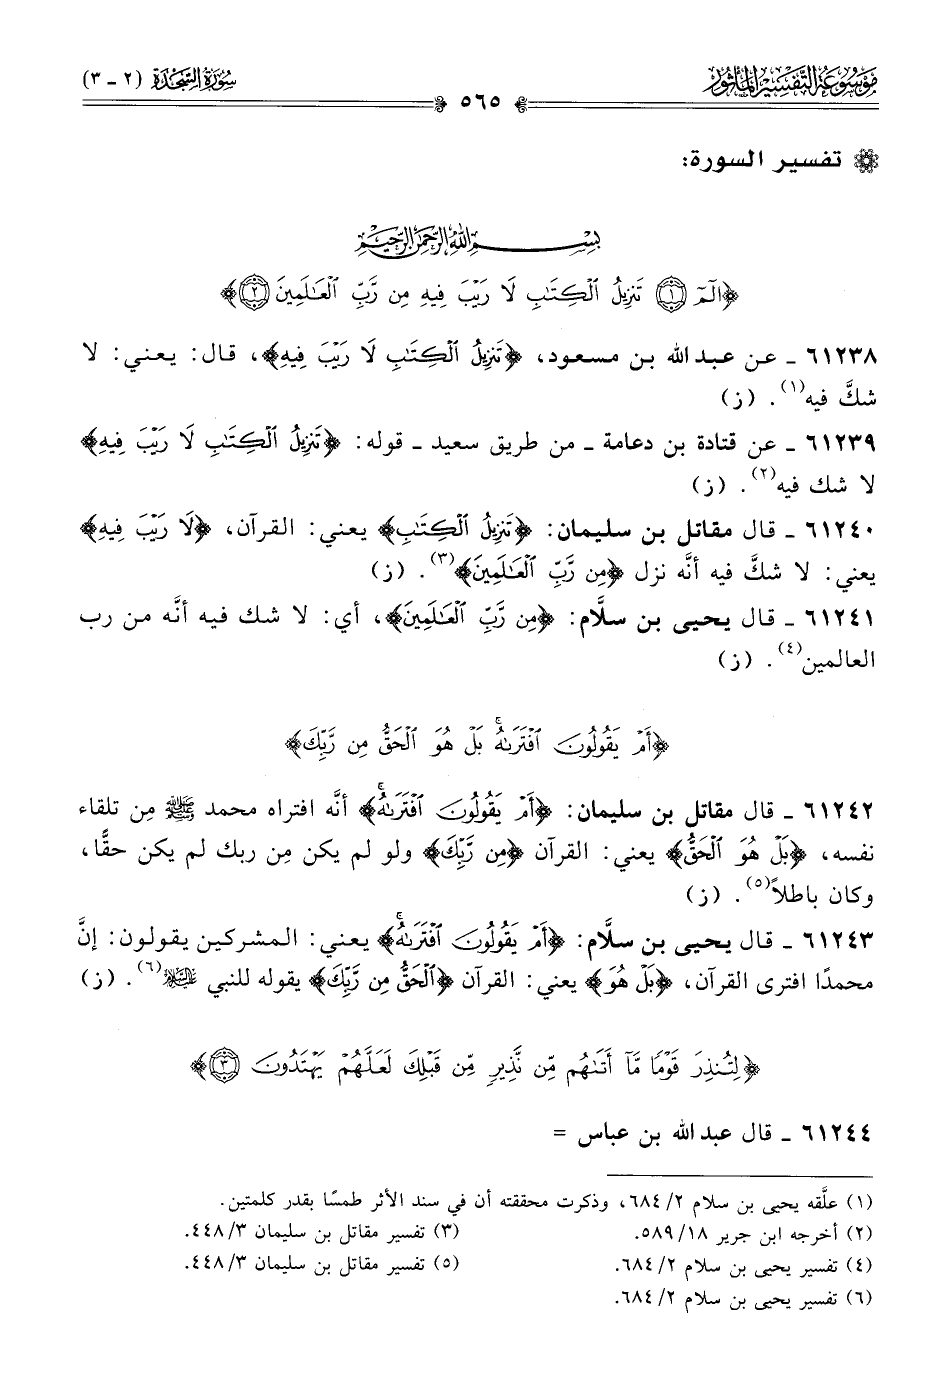 موسوعة التفسير المأثور
سورة السجدة (٢ - ٣)
٥٦٥
تفسير السورة:
بسم الله الرحمن الرحيم
﴿الٓمٓ ۝١ تَنزِيلُ ٱلْكِتَٰبِ لَا رَيْبَ فِيهِ مِن رَّبِّ ٱلْعَٰلَمِينَ ۝٢﴾
٦١٢٣٨ ـ عن عبد الله بن مسعود، ﴿تَنزِيلُ ٱلْكِتَٰبِ لَا رَيْبَ فِيهِ﴾، قال: يعني: لا
شكَّ فيه(١). (ز)
٦١٢٣٩ ـ عن قتادة بن دعامة ـ من طريق سعيد ـ قوله: ﴿تَنزِيلُ ٱلْكِتَٰبِ لَا رَيْبَ فِيهِ﴾
لا شك فيه(٢). (ز)
٦١٢٤٠ ـ قال مقاتل بن سليمان: ﴿تَنزِيلُ ٱلْكِتَٰبِ﴾ يعني: القرآن، ﴿لَا رَيْبَ فِيهِ﴾
يعني: لا شكَّ فيه أنَّه نزل ﴿مِن رَّبِّ ٱلْعَٰلَمِينَ﴾(٣). (ز)
٦١٢٤١ ـ قال يحيى بن سلَّام: ﴿مِن رَّبِّ ٱلْعَٰلَمِينَ﴾، أي: لا شك فيه أنَّه من رب
العالمين(٤). (ز)
﴿أَمْ يَقُولُونَ ٱفْتَرَىٰهُ ۚ بَلْ هُوَ ٱلْحَقُّ مِن رَّبِّكَ﴾
٦١٢٤٢ ـ قال مقاتل بن سليمان: ﴿أَمْ يَقُولُونَ ٱفْتَرَىٰهُ ۚ﴾ أنَّه افتراه محمد ﷺ مِن تلقاء
نفسه، ﴿بَلْ هُوَ ٱلْحَقُّ﴾ يعني: القرآن ﴿مِن رَّبِّكَ﴾ ولو لم يكن مِن ربك لم يكن حقًّا،
وكان باطلاً(٥). (ز)
٦١٢٤٣ ـ قال يحيى بن سلَّام: ﴿أَمْ يَقُولُونَ ٱفْتَرَىٰهُ ۚ﴾ يعني: المشركين يقولون: إنَّ
محمدًا افترى القرآن، ﴿بَلْ هُوَ﴾ يعني: القرآن ﴿ٱلْحَقُّ مِن رَّبِّكَ﴾ يقوله للنبي عليه السلام(٦). (ز)
﴿لِتُنذِرَ قَوْمًا مَّآ أَتَىٰهُم مِّن نَّذِيرٍ مِّن قَبْلِكَ لَعَلَّهُمْ يَهْتَدُونَ ۝٣﴾
٦١٢٤٤ ـ قال عبد الله بن عباس =
(١) علَّقه يحيى بن سلام ٢/ ٦٨٤، وذكرت محققته أن في سند الأثر طمسًا بقدر كلمتين.
(٢) أخرجه ابن جرير ١٨/ ٥٨٩.
(٣) تفسير مقاتل بن سليمان ٣/ ٤٤٨.
(٤) تفسير يحيى بن سلام ٢/ ٦٨٤.
(٥) تفسير مقاتل بن سليمان ٣/ ٤٤٨.
(٦) تفسير يحيى بن سلام ٢/ ٦٨٤.